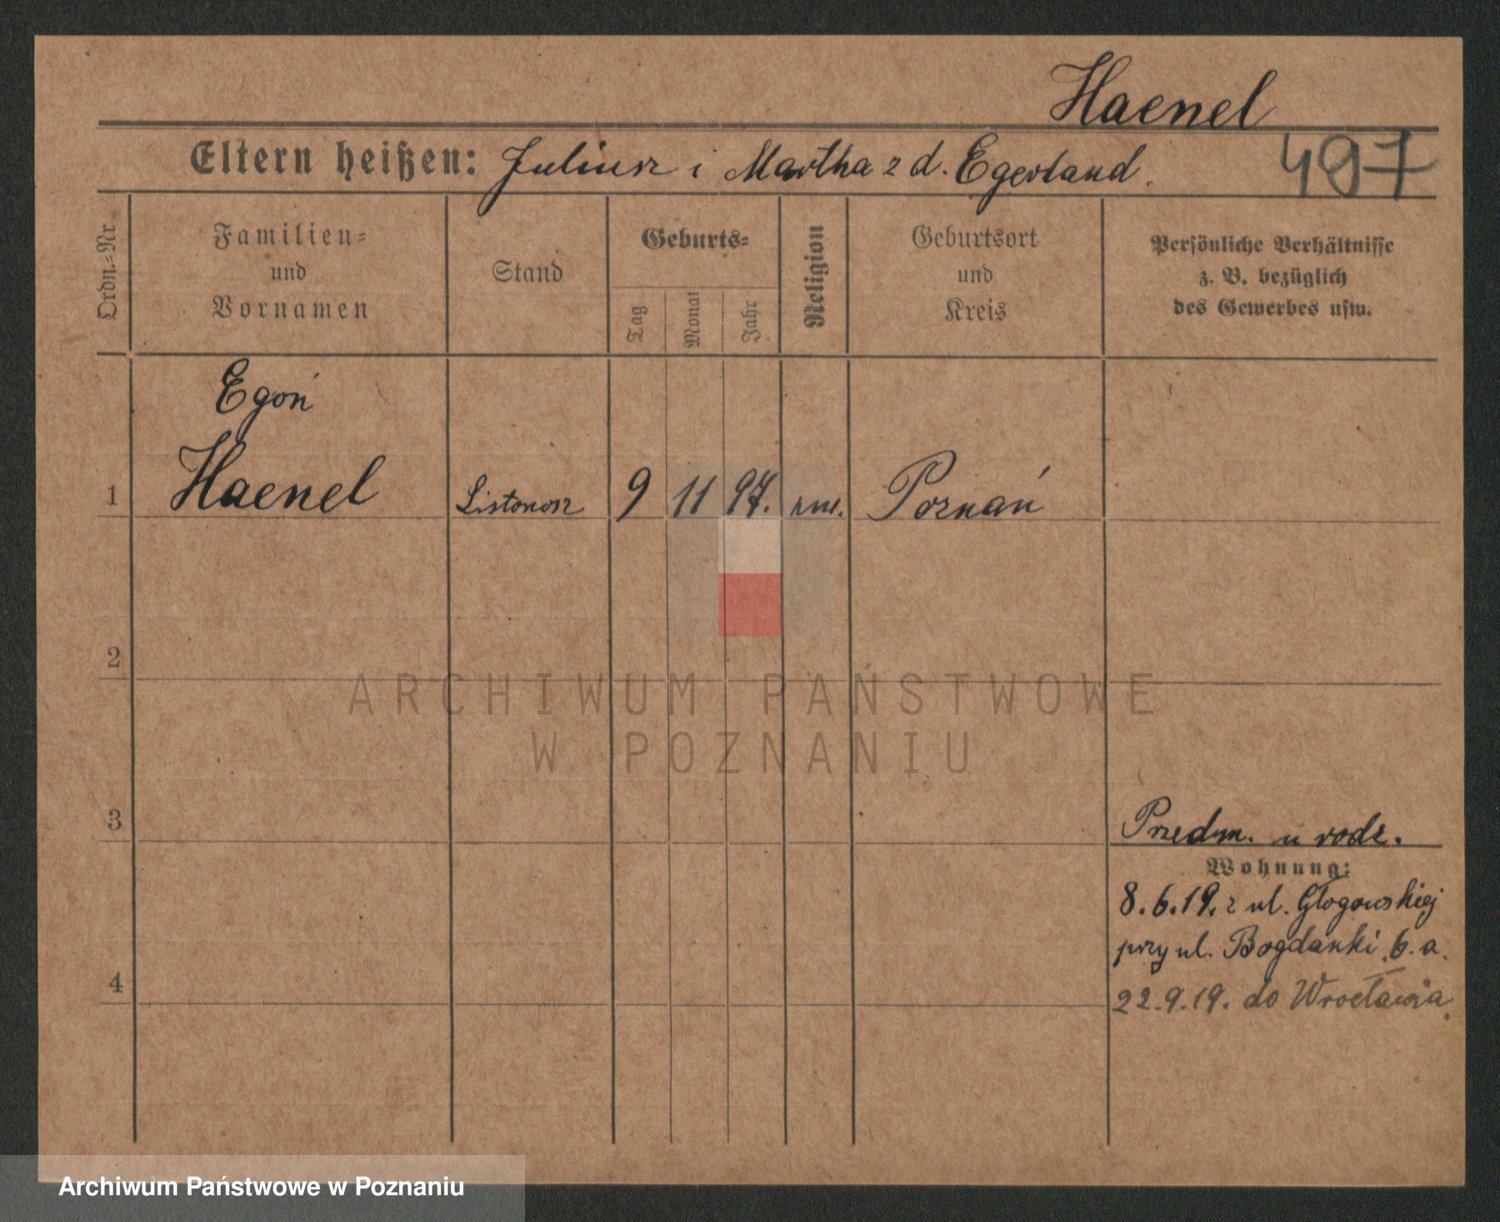 Haenel
Eltern heißen: Juliusz i Martha z d. Egerland.
497
Ordn.-Nr.
Familien-
und
Vornamen
Stand
Geburts-
Tag
Monat
Jahr
Religion
Geburtsort
und
Kreis
Persönliche Verhältnisse
z. B. bezüglich
des Gewerbes usw.
Egon
1 Haenel Listonosz 9 11 97. Poznań
2
ARCHIWUM PAŃSTWOWE
W POZNANIU
3
Przedm. u rodz.
Wohnung:
8.6.19. z ul. Głogowskiej
przy ul. Bogdanki 6.a.
4
22.9.19. do Wrocławia.
Archiwum Państwowe w Poznaniu